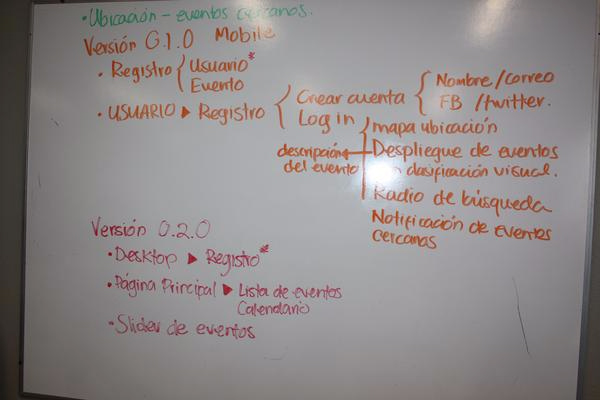 • Ubicación - eventos cercanos.
Versión 0.1.0 Mobile
• Registro { Usuario*
Evento
• USUARIO ▶ Registro { Crear cuenta { Nombre/correo
FB / twitter.
Log in { mapa ubicación
descripción del evento ← Despliegue de eventos
clasificación visual.
Radio de búsqueda
Notificación de eventos
cercanas
Versión 0.2.0
• Desktop ▶ Registro*
• Página Principal ▶ Lista de eventos
Calendario
• Slider de eventos